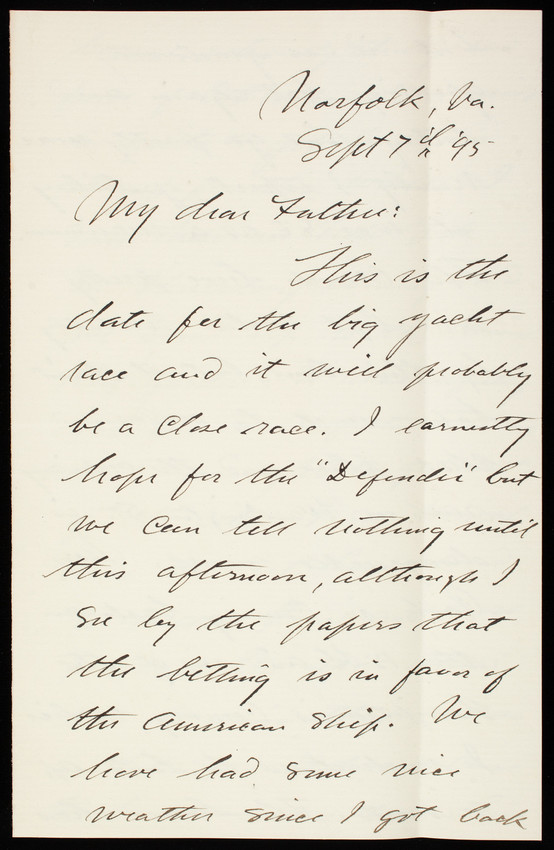 Norfolk, Va.
Sept 7th '95
My dear Father:
This is the
date for the big yacht
race and it will probably
be a close race. I earnestly
hope for the "Defender" but
we can tell nothing until
this afternoon, although I
see by the papers that
the betting is in favor of
the American ship. We
have had some nice
weather since I got back